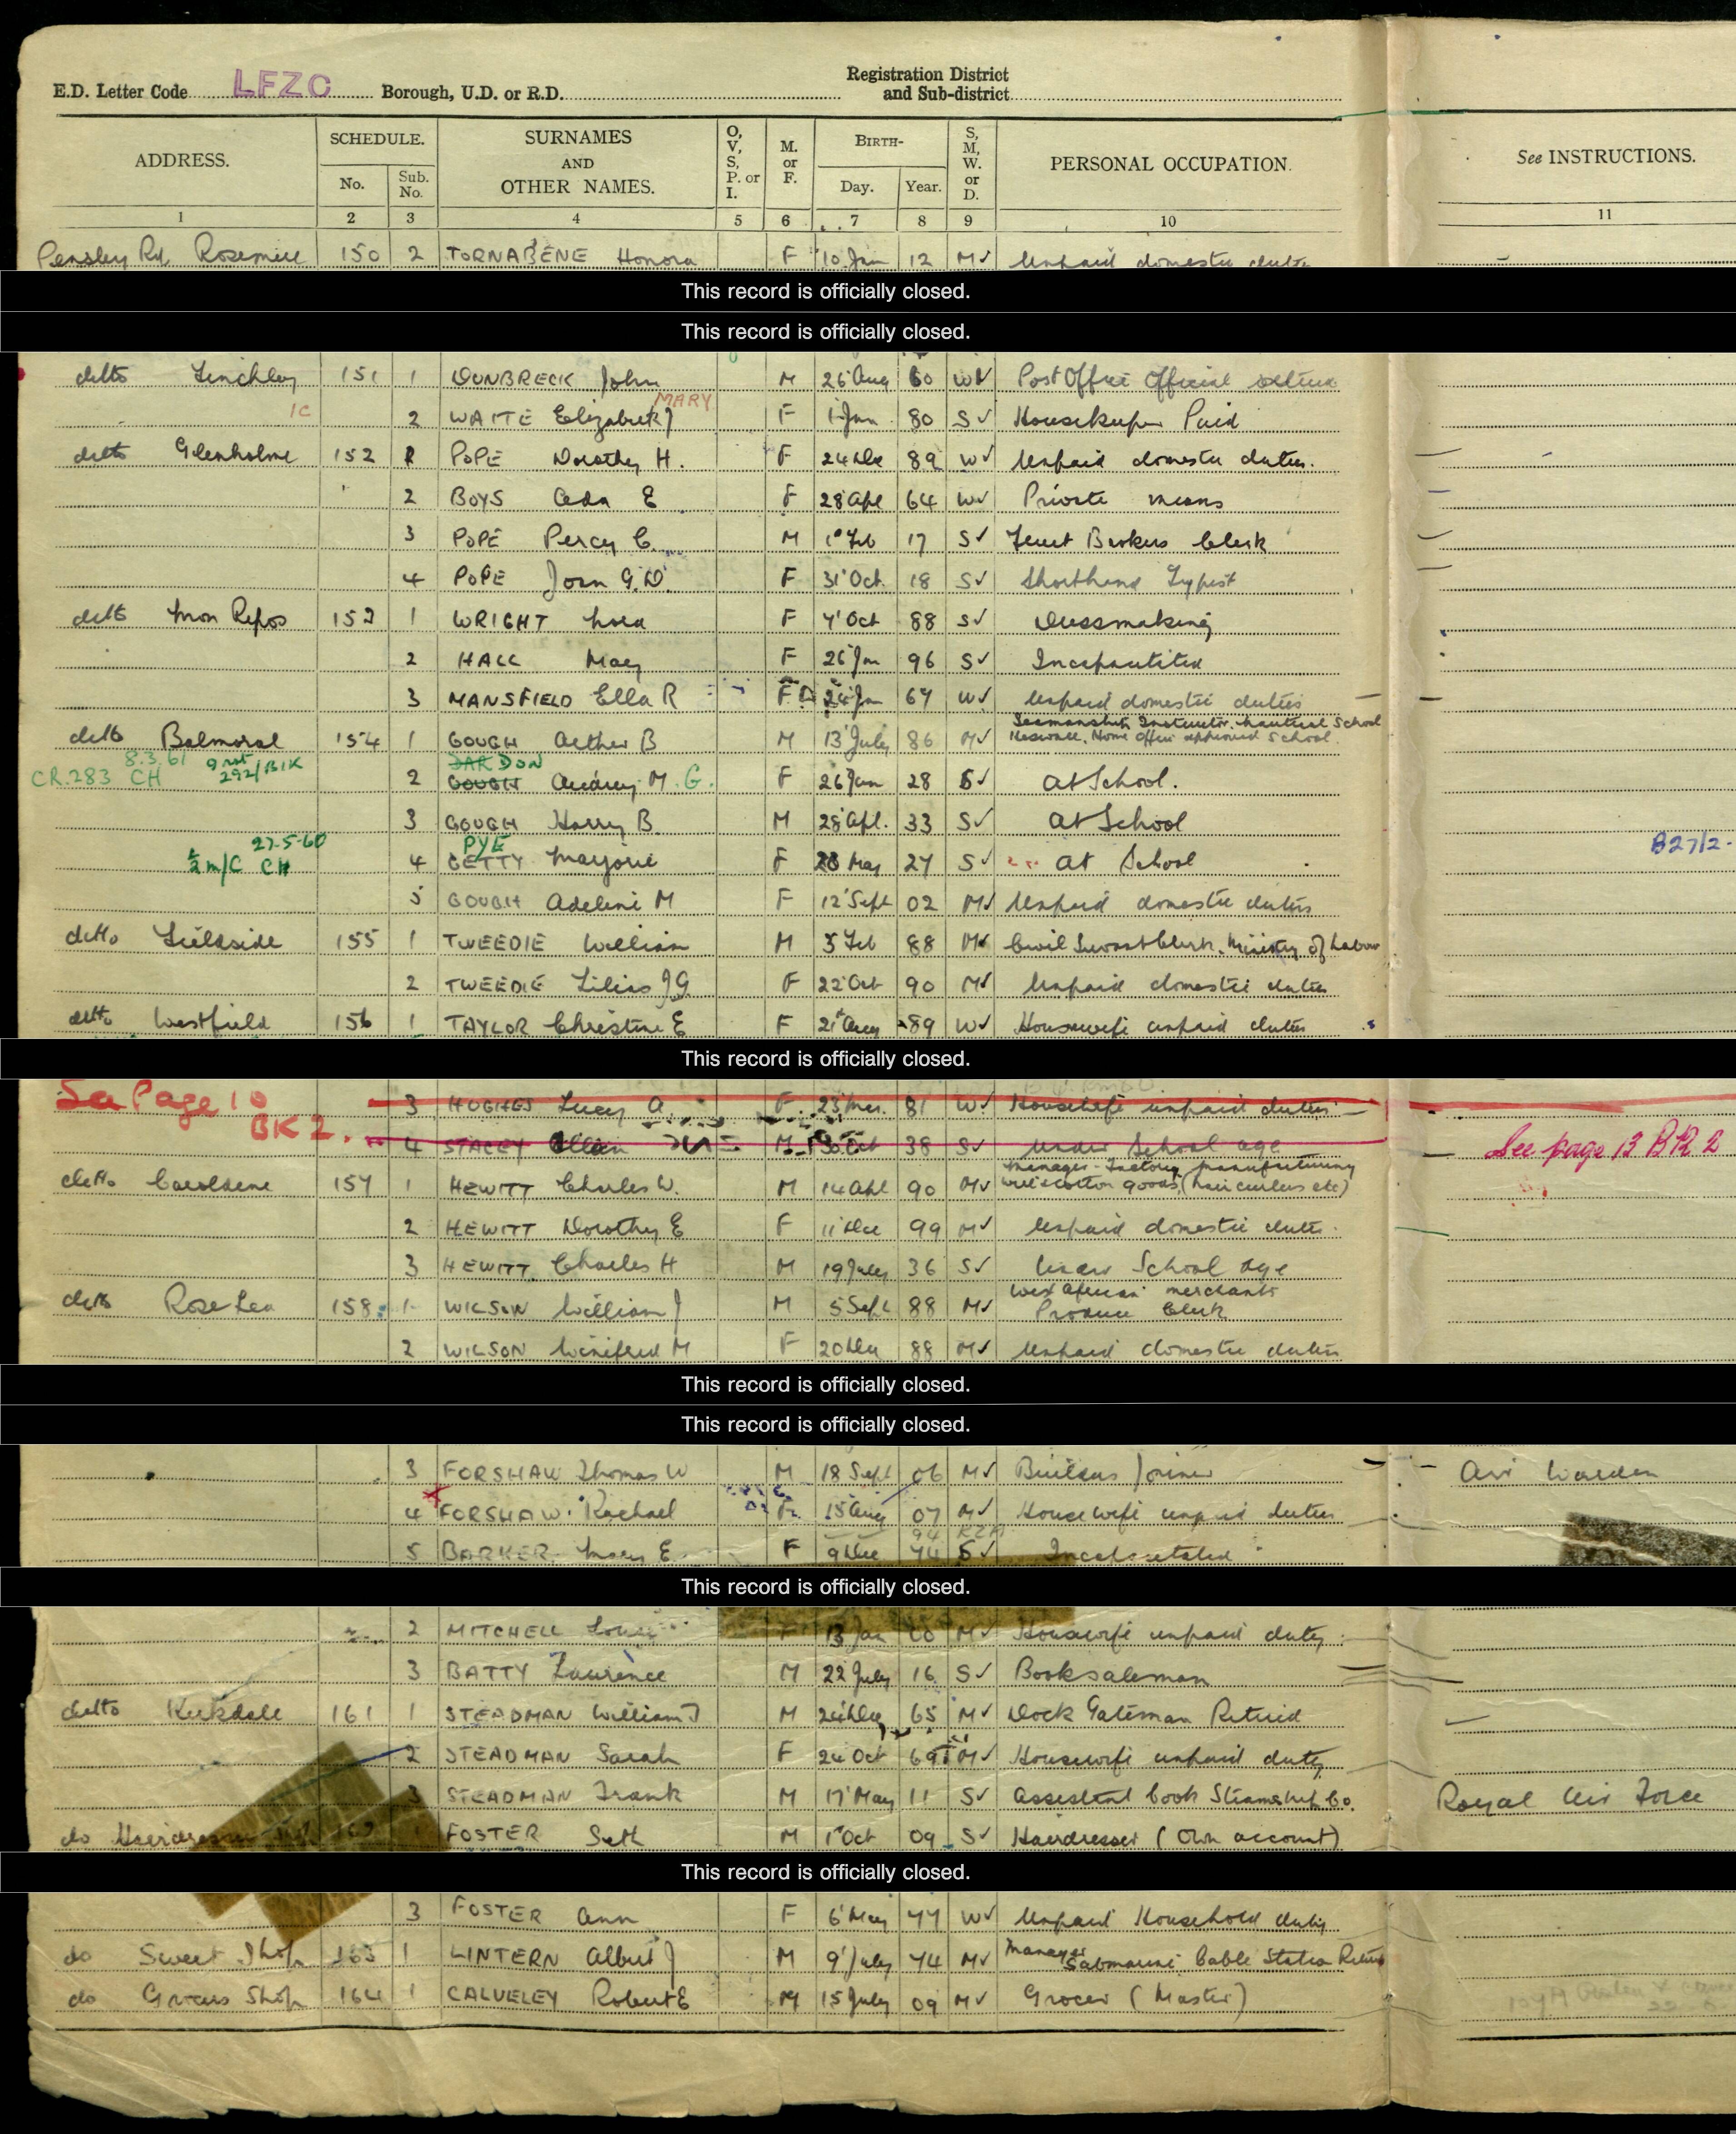 E.D. Letter Code LFZC Borough, U.D. or R.D. Registration District and Sub-district
ADDRESS. SCHEDULE. No. Sub. No. SURNAMES AND OTHER NAMES. O, V, S, P. or I. M. or F. BIRTH- Day. Year. S, M, W. or D. PERSONAL OCCUPATION. See INSTRUCTIONS.
1 2 3 4 5 6 7 8 9 10 11
Pensby Rd. 150 2 TORNABENE Honora F 10 Jan 12 M Unpaid domestic duties
This record is officially closed.
This record is officially closed.
ditto Finchley 151 1 DUNBRECK John M 26 Aug 60 Post Office Official retired
1C 2 WAITE Elizabeth J MARY F 1 Jan 80 S Housekeeper Paid
ditto Glenholme 152 POPE Dorothy H. F 24 Dec 89 W Unpaid domestic duties.
2 BOYS Ada E F 28 Apl 64 W Private means
3 POPE Percy C. M 1 Feb 17 S Fruit Brokers Clerk
4 POPE Joan G.D. F 31 Oct. 18 S Shorthand Typist
ditto Mon Repos 153 1 WRIGHT Nora F 4 Oct 88 S Dressmaking
2 HALL Mary F 26 Jan 96 S Incapacitated
3 MANSFIELD Ella R F 24 Jan 67 W Unpaid domestic duties
ditto Balmoral 154 1 GOUGH Arthur B M 13 July 86 M Seamanship Instructor. Nautical School Heswall. Home Office approved School.
8.3.61 CR.283 CH 292/BIK DARDON
2 GOUGH Audrey M. G. F 26 Jan 28 S At School.
3 GOUGH Harry B. M 28 Apl. 33 S At School
27-5-60 ½ m/c CH PYE B27/2-
4 GETTY Marjorie F 28 May 27 S At School
5 GOUGH Adeline M F 12 Sept 02 M Unpaid domestic duties
ditto Fieldside 155 1 TWEEDIE William M 5 Feb 88 M Civil Servant Clerk. Ministry of Labour
2 TWEEDIE Lilias J G F 22 Oct 90 M Unpaid domestic duties
ditto Westfield 156 1 TAYLOR Christine E F 21 Aug 89 W Housewife unpaid duties
This record is officially closed.
See Page 10 BK 2. 3 HUGHES Lucy A F 23 Mar. 81 W Housewife unpaid duties
4 STACEY M 30 Oct 38 S Under School age See page 13 BK 2
ditto 157 1 HEWITT Charles W. M 14 Apl 90 M Manager - Factory manufacturing goods, (hair curlers etc)
2 HEWITT Dorothy E F 11 Dec 99 M Unpaid domestic duties.
3 HEWITT Charles H M 19 July 36 S Under School age
ditto Rose Lea 158 1 WILSON William J M 5 Sept 88 M West African merchants Produce Clerk
2 WILSON Winifred M F 20 Dec 88 M Unpaid domestic duties
This record is officially closed.
This record is officially closed.
3 FORSHAW Thomas W M 18 Sept 06 M Builders Joiner Air Warden
4 FORSHAW Rachael F 15 Aug 07 M Housewife unpaid duties
5 BARKER Mary E. F 9 Dec 74 94 S Incapacitated
This record is officially closed.
2 MITCHELL F 13 Jan M Housewife unpaid duty
3 BATTY Laurence M 22 July 16 S Booksalesman
ditto Kirkdale 161 1 STEADMAN William J M 24 Dec 65 M Dock Gateman Retired
2 STEADMAN Sarah F 24 Oct 69 M Housewife unpaid duty
3 STEADMAN Frank M 17 May 11 S Assistant Cook Steamship Co. Royal Air Force
do 162 1 FOSTER Seth M 1 Oct 09 S Hairdresser (Own account)
This record is officially closed.
3 FOSTER Ann F 6 May 77 W Unpaid Household duty
do Sweet Shop 163 1 LINTERN Albert J M 9 July 74 M Manager Submarine Cable Station Retired
do Grocers Shop 164 1 CALVELEY Robert E M 15 July 09 M Grocer (Master)